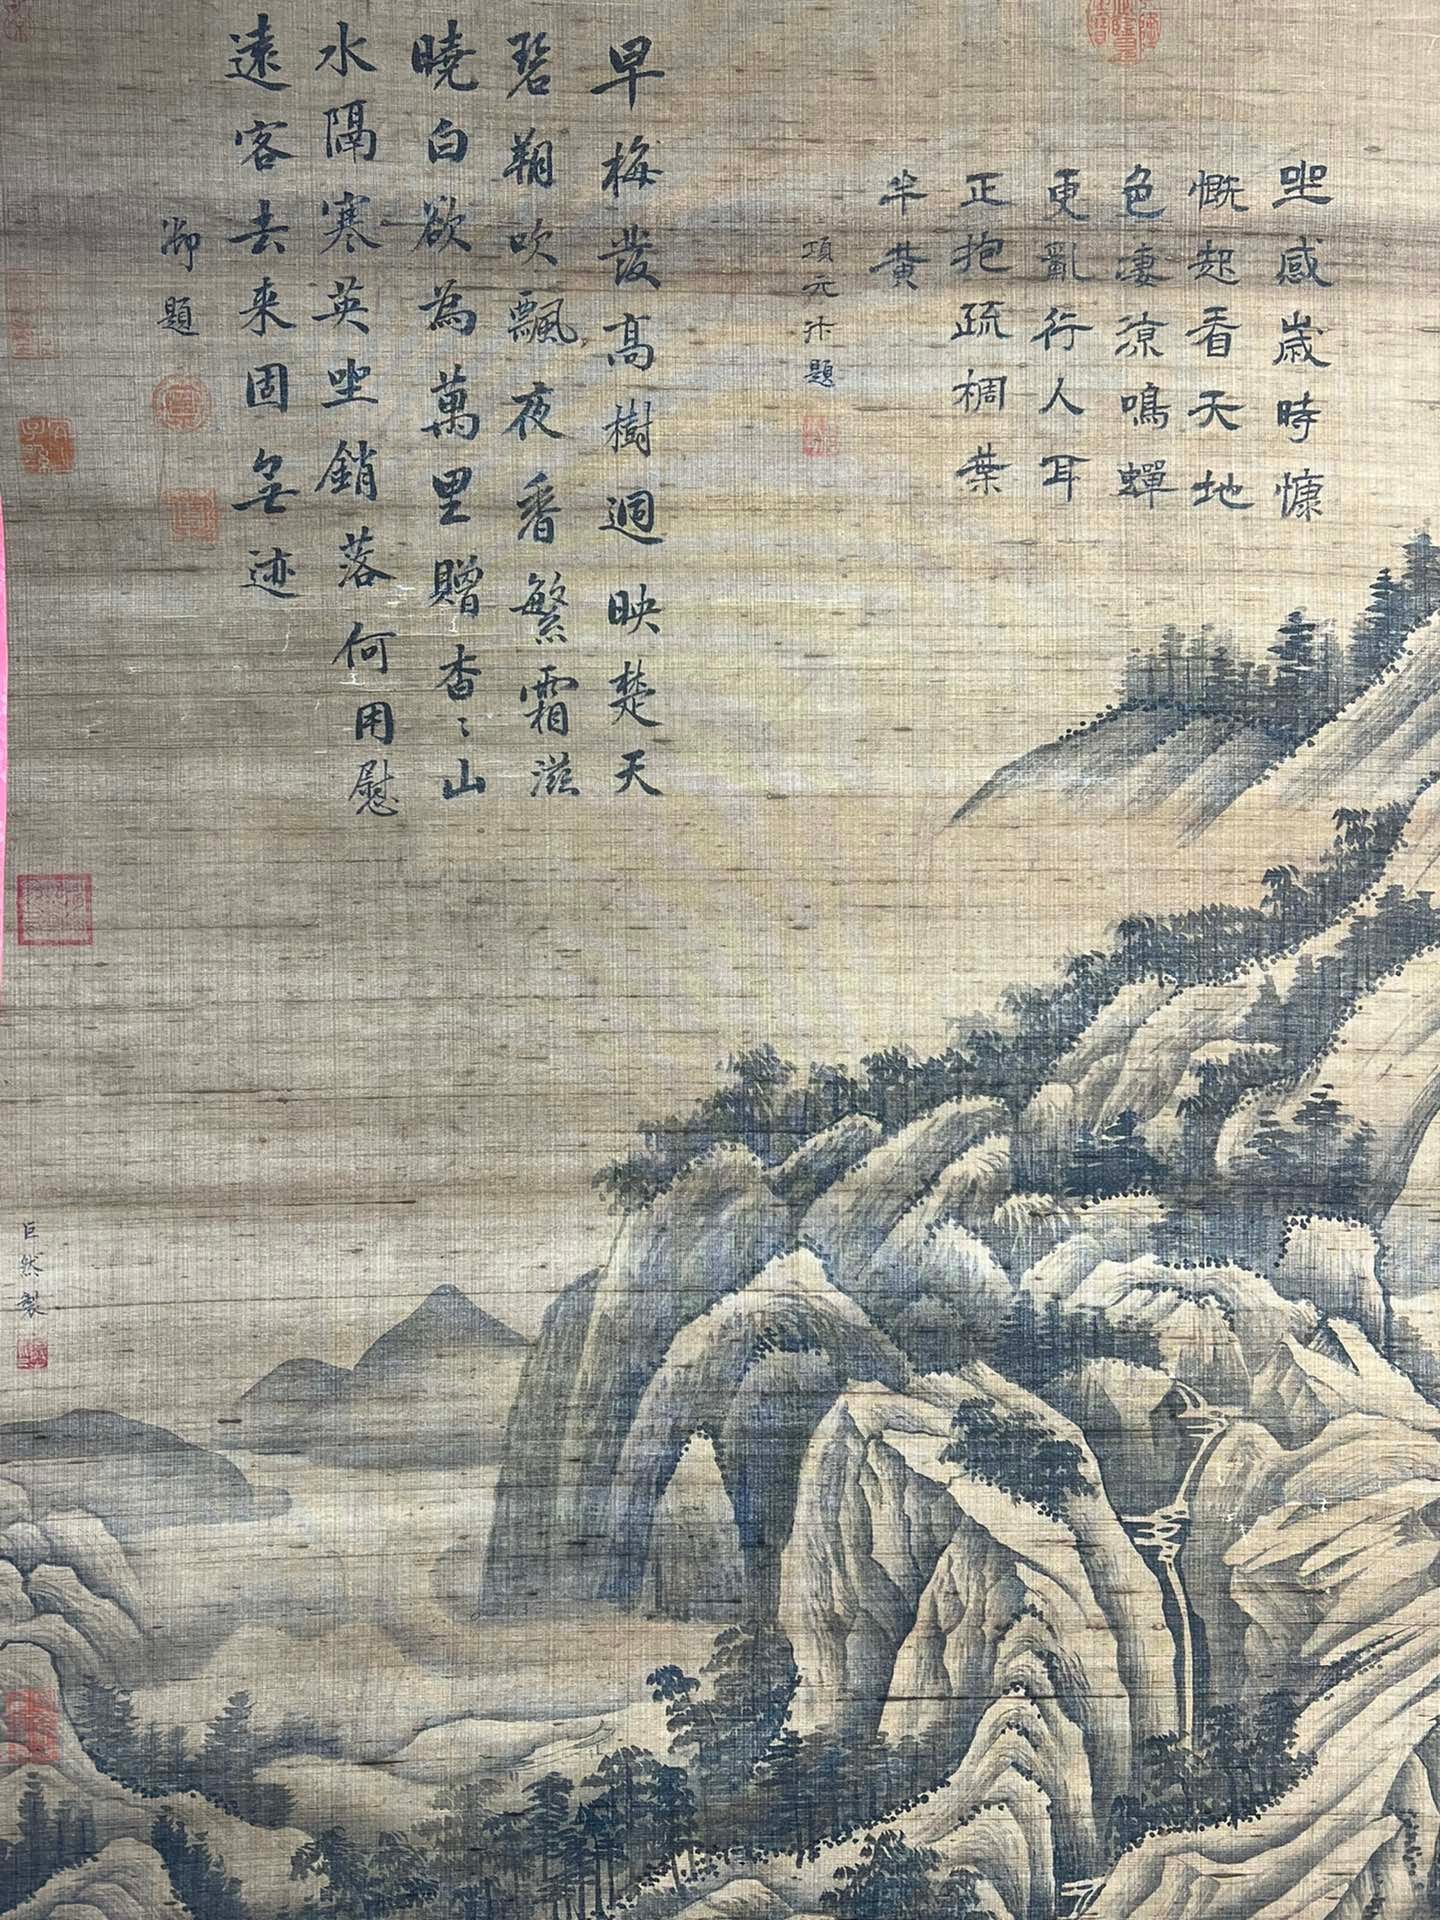 坐感歲時慷
慨起看天地
色凄涼鳴蟬
更亂行人耳
正抱疏桐葉
半黄
項元汴題
早梅發高樹迥映楚天
碧朔吹飄夜香繁霜滋
曉白欲為萬里贈杳〻山
水隔寒英坐銷落何用慰
遠客去来固無迹
御題
巨然製